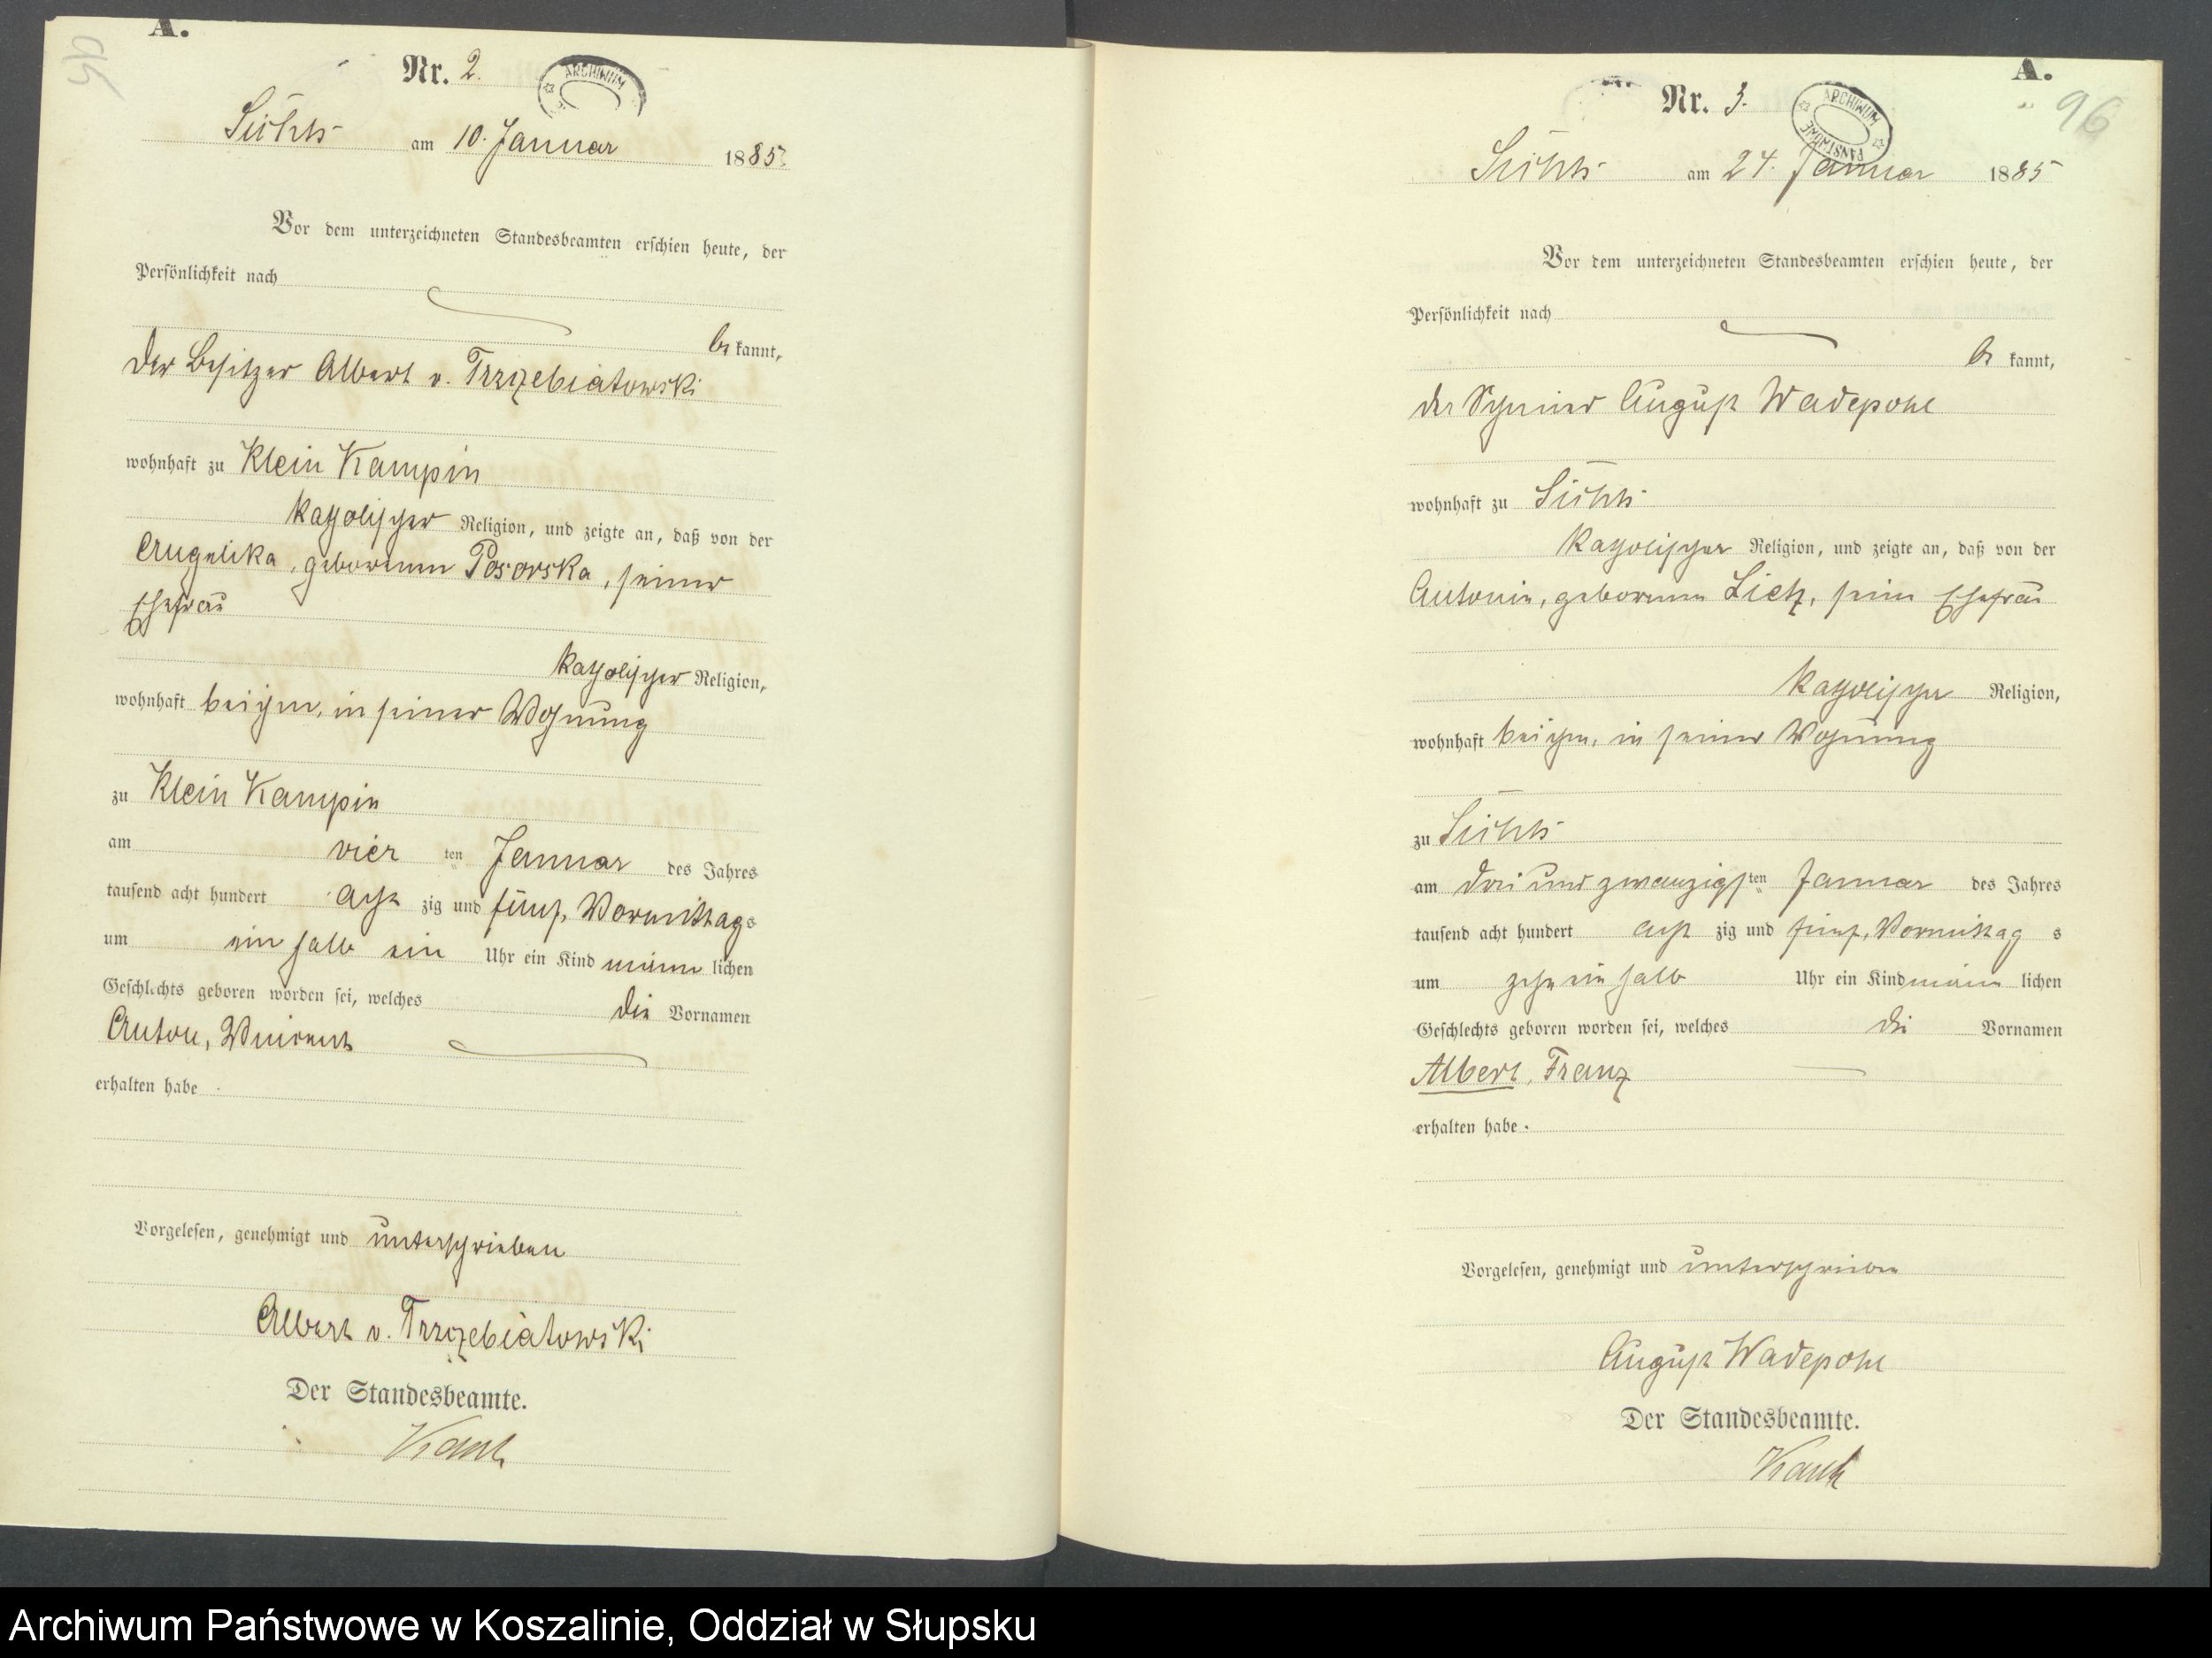 A.
Nr. 2.
ARCHIWUM
am 10. Januar 1885.
Vor dem unterzeichneten Standesbeamten erschien heute, der
Persönlichkeit nach
be kannt,
der Besitzer Albert v. Trzçebiatowski
wohnhaft zu Klein Kampin
katholischer Religion, und zeigte an, daß von der
Angelika, geborenen Posorska, seiner
Ehefrau
katholischer Religion,
wohnhaft bei ihm, in seiner Wohnung
zu Klein Kampin
am vier ten Januar des Jahres
tausend acht hundert acht zig und fünf, Vormittags
um ein halb ein Uhr ein Kind männ lichen
Geschlechts geboren worden sei, welches die Vornamen
Anton, Vincent
erhalten habe.
Vorgelesen, genehmigt und unterschrieben
Albert v. Trzçebiatowski
Der Standesbeamte.
A.
96
Nr. 3.
ARCHIWUM PAŃSTWOWE
am 24. Januar 1885
Vor dem unterzeichneten Standesbeamten erschien heute, der
Persönlichkeit nach
be kannt,
der August Wadepohl
wohnhaft zu
katholischer Religion, und zeigte an, daß von der
Antonie, geborenen Lietz, seine Ehefrau
katholischer Religion,
wohnhaft bei ihm, in seiner Wohnung
zu
am drei und zwanzigsten Januar des Jahres
tausend acht hundert acht zig und fünf, Vormittag s
um zehn ein halb Uhr ein Kind männ lichen
Geschlechts geboren worden sei, welches die Vornamen
Albert, Franz
erhalten habe.
Vorgelesen, genehmigt und unterschrieben
August Wadepohl
Der Standesbeamte.
Archiwum Państwowe w Koszalinie, Oddział w Słupsku